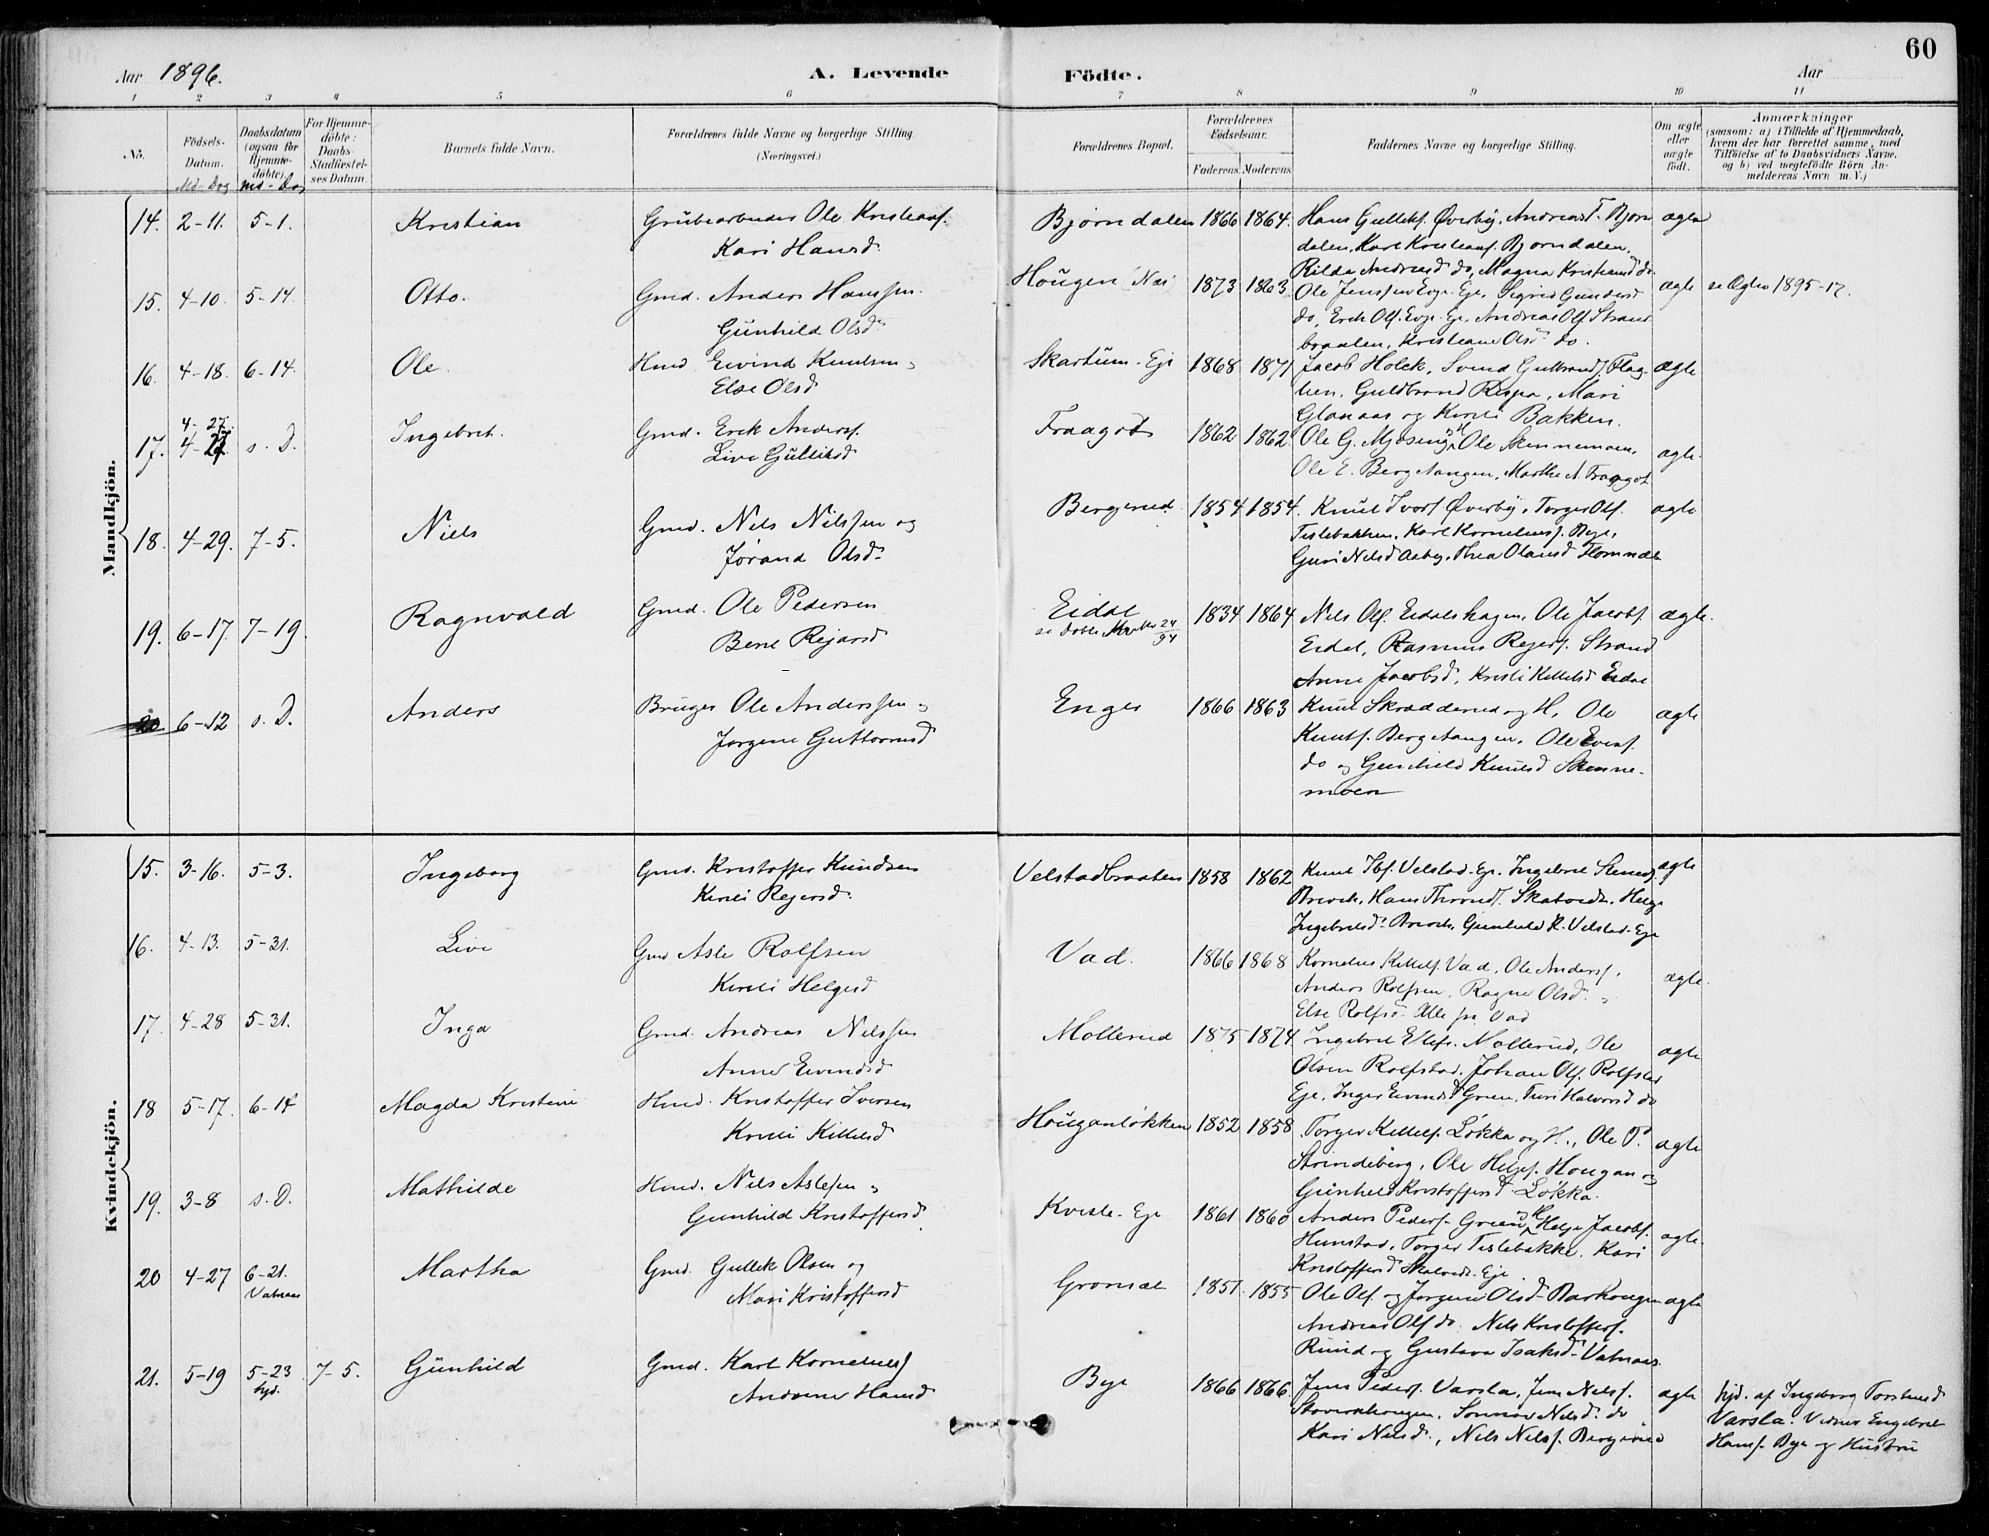 60
Aar 1896.
A. Levende
Födte.
Aar
1 2 3 4 5 6 7 8 9 10 11
No.
Födsels-Datum.
Md-Dag
Daabsdatum (ogsaa for Hjemme-döbte)
Md-Dag
For Hjemme-döbte: Daabs-Stadfæstel-ses Datum
Barnets fulde Navn.
Forældrenes fulde Navne og borgerlige Stilling.
(Næringsvei.)
Forældrenes Bopæl.
Forældrenes Födselsaar.
Faderens. Moderens.
Faddernes Navne og borgerlige Stilling.
Om ægte eller uægte födt.
Anmærkninger
(saasom: a) i Tilfælde af Hjemmedaab,
hvem der har forrettet samme, med
Tilföielse af to Daabsvidners Navne.
og b) ved uægtefödte Börn An-
melderens Navn m. V.)
Mandkjön.
14. 2-11. 5-1. Kristian
Grubearbeider Ole Kristians.
Kari Hansd.
Bjørndalen 1866 1864.
Hans Gulliks. Øverby, Andreas T. Bjørn
dalen, Karl Kristians. Bjørndalen,
Kristiansd do.
ægte
15. 4-10. 5-14. Otto.
Gmd. Anders Hanssen.
Gunhild Olsd.
Hougen Næs 1873 1863
Ole Jenssen Evje Eje, Sigrid Gundersd
do, Erik Ols. Evje Eje, Andreas Ols. Strand
braaten, Kristiane Olsd do.
ægte
se Ægtev 1895-17.
16. 4-18. 6-14. Ole.
Hmd Eivind Knudsen
Else Olsd
Skartum-Eje 1868 1871
Jacob Holck, Svend Gulbrands. Flag-
ten, Guldbrand Rispa, Mari
Glanaas og Kirsti Bakken.
ægte
17. 4-27. s. D. Ingebret.
Gmd. Erik Anders.
Live Gulliksd
Fraagot 1862 1862.
Ole G. Mjøseng, Ole Skinnemoen,
Ole E. Bergstangen, Marthe A. Fraagot
ægte.
18. 4-29. 7-5. Niels
Gmd. Nils Nilssen og
Jørand Olsd.
Bergerud. 1854 1854.
Knut Ivers. Øverby, Torger Ols.
Tislebakken, Karl Kornelius. Bye,
Guri Nilsd Aaby, Thea Olausd
ægte
19. 6-17. 7-19. Ragnvald
Gmd. Ole Pedersen
Berit Rejarsd
Eidal 1834 1864
se døbte 24/94
Nils Ols. Eidalshagen, Ole Jacobs.
Eidal, Rasmus Rejers. Strand
Anne Jacobsd, Kristi Kittelsd Eidal
ægte.
20. 6-12 s. D. Anders
Bruger Ole Anderssen
Jørgine Guttormsd
Enger 1866 1863
Knut Skradderud og H, Ole
Knuts. Bergstangen, Ole Evens.
do og Gunhild Knutsd Skinne-
moen
ægte
Kvindekjön.
15. 3-16. 5-3. Ingeborg
Gmd. Kristoffer Knudsen
Kirsti Rejersd.
Velstadbraaten 1858 1862
Knut Ibs. Velstad-Eje, Ingebret Stens.
Brevik, Hans Skatvedt, Helge
Ingebretsd Brevik, Gunhild K. Velstad-Eje
ægte
16. 4-13. 5-31. Live
Gmd Asle Rolfsen
Kirsti Helgesd
Vad. 1866 1868
Kornelius Kittels. Vad, Ole Anders.,
Anders Rolfsen, Ragne Olsd.
Else Rolfsd Alle paa Vad
ægte.
17. 4-28 5-31. Inga
Gmd. Andreas Nilssen
Anne Eivindsd
Møllerud 1875 1874
Ingebret Ellefs. Møllerud, Ole
Olsen Rolfstad, Johan Ols. Rolfstad
Eje, Inger Eivindsd Green, Turi Halvorsd do
ægte
18 5-17. 6-14 Magda Kristine
Hmd. Kristoffer Iversen
Kirsti Kittilsd
Houganløkken 1852 1858
Torger Kittels. Løkka og H., Ole P.
Strindeberg, Ole Helges. Hougan og
Gunhild Kristoffersd Løkka.
ægte
19. 3-8 s. D. Mathilde
Hmd. Nils Aslesen
Gunhild Kristoffersd
Kvisle-Eje 1861 1860
Anders Peders. Green, Helge Jacobs.
Hunstad, Torger Tislebakke, Kari
Kristoffersd Skatvedt-Eje
ægte.
20 4-27 6-21. Vatnaas Martha
Gmd. Gullik Olsen og
Mari Kristoffersd
Gronsæt 1851. 1855
Ole Ols. og Jørgine Olsd Barhougen
Andreas Ols do. Nils Kristoffers.
Ruud og Gustava Isaksd Vatnaas.
ægte
21. 5-19 5-23 hjd. 7-5. Gunhild
Gmd. Karl Kornelius.
Andrine Hansd
Bye 1866 1866.
Jens Peders. Varsla, Jens Nils.
Stavernhougen, Sønnøv Nilsd. do
Kari Nilsd., Nils Nils. Bergerud
ægte
hjd. af Ingeborg Torstensd
Varsla. Vidner Engebret
Hans. Bye og Hustru